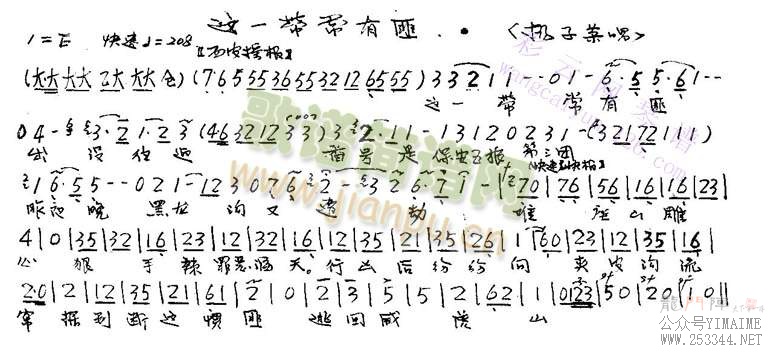 这一带常有匪 · · 〈杨子荣唱〉
1=E 快速♩=208 【西皮摇板】
(大大大大 乙大 大大 仓) (7655536553212 6555) 33211--01-6·55·61--
这一带 常有匪
04-3·21·23 (463212 33) 32·11-13120231-(321721 11)
出没往返 番号是保安五旅 第三团
【快速快板】
161·655--021-123076 2-3 26·7 1-|70|76|56|16|16|23|
昨夜晚 黑龙沟又遭 座山雕
4|0|35|32|16|23|12|32|16|12|35|21|35|26|1|60|23|12|35|16|
心狠手辣罪恶滔天。行凶后纷纷向 夹皮沟流
20|2|12|35|21|61|2|0|2|3|5|5|2|62|1|1|0123|50|20|10||
窜 探到断这惯匪 逃回威虎山
歌谱简谱网
www.jianpu.cn
彩云网琴谱
龍門陣
公众号YIMAIME
www.253344.NET